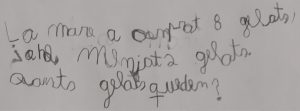 La mare a comprat 8 gelats,
jo he Menjat 2 gelats.
Quants gelats queden?